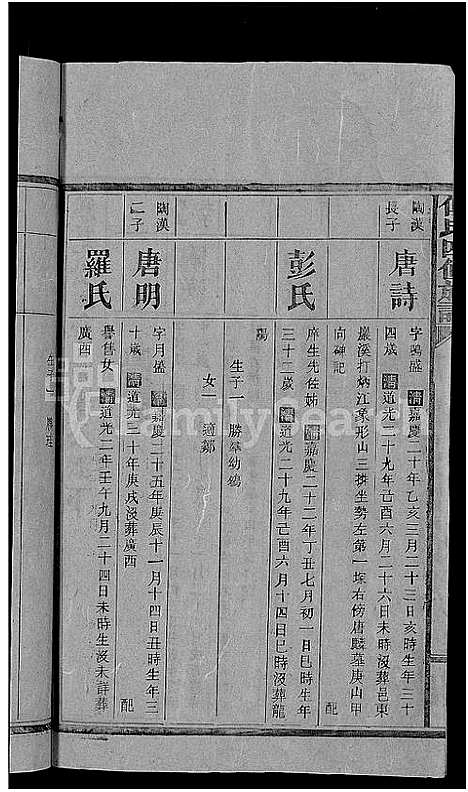 氏四修族譜
國漢長子
唐詩
字鳴盛 清嘉慶二十年乙亥三月二十三日亥時生年三十
四歲 清道光二十九年己酉六月二十六日未時沒葬邑東
巖溪打炳江象形山三擠坐勢左第一塚右傍唐麟墓庚山甲
向碑記 配
彭氏
庠生先佐姊 清嘉慶二十二年丁丑七月初一日巳時生年
三十二歲 清道光二十九年己酉六月十四日巳時沒葬龍
陽
生子一 勝 幼殤
女一 適鄒
國漢二子
唐明
字月盛 清嘉慶二十五年庚辰十一月十四日丑時生年三
十歲 清道光三十年庚戌沒葬廣西 配
羅氏
譽售女 清道光二年壬午九月二十四日未時生沒未詳葬
廣西
FamilySearch